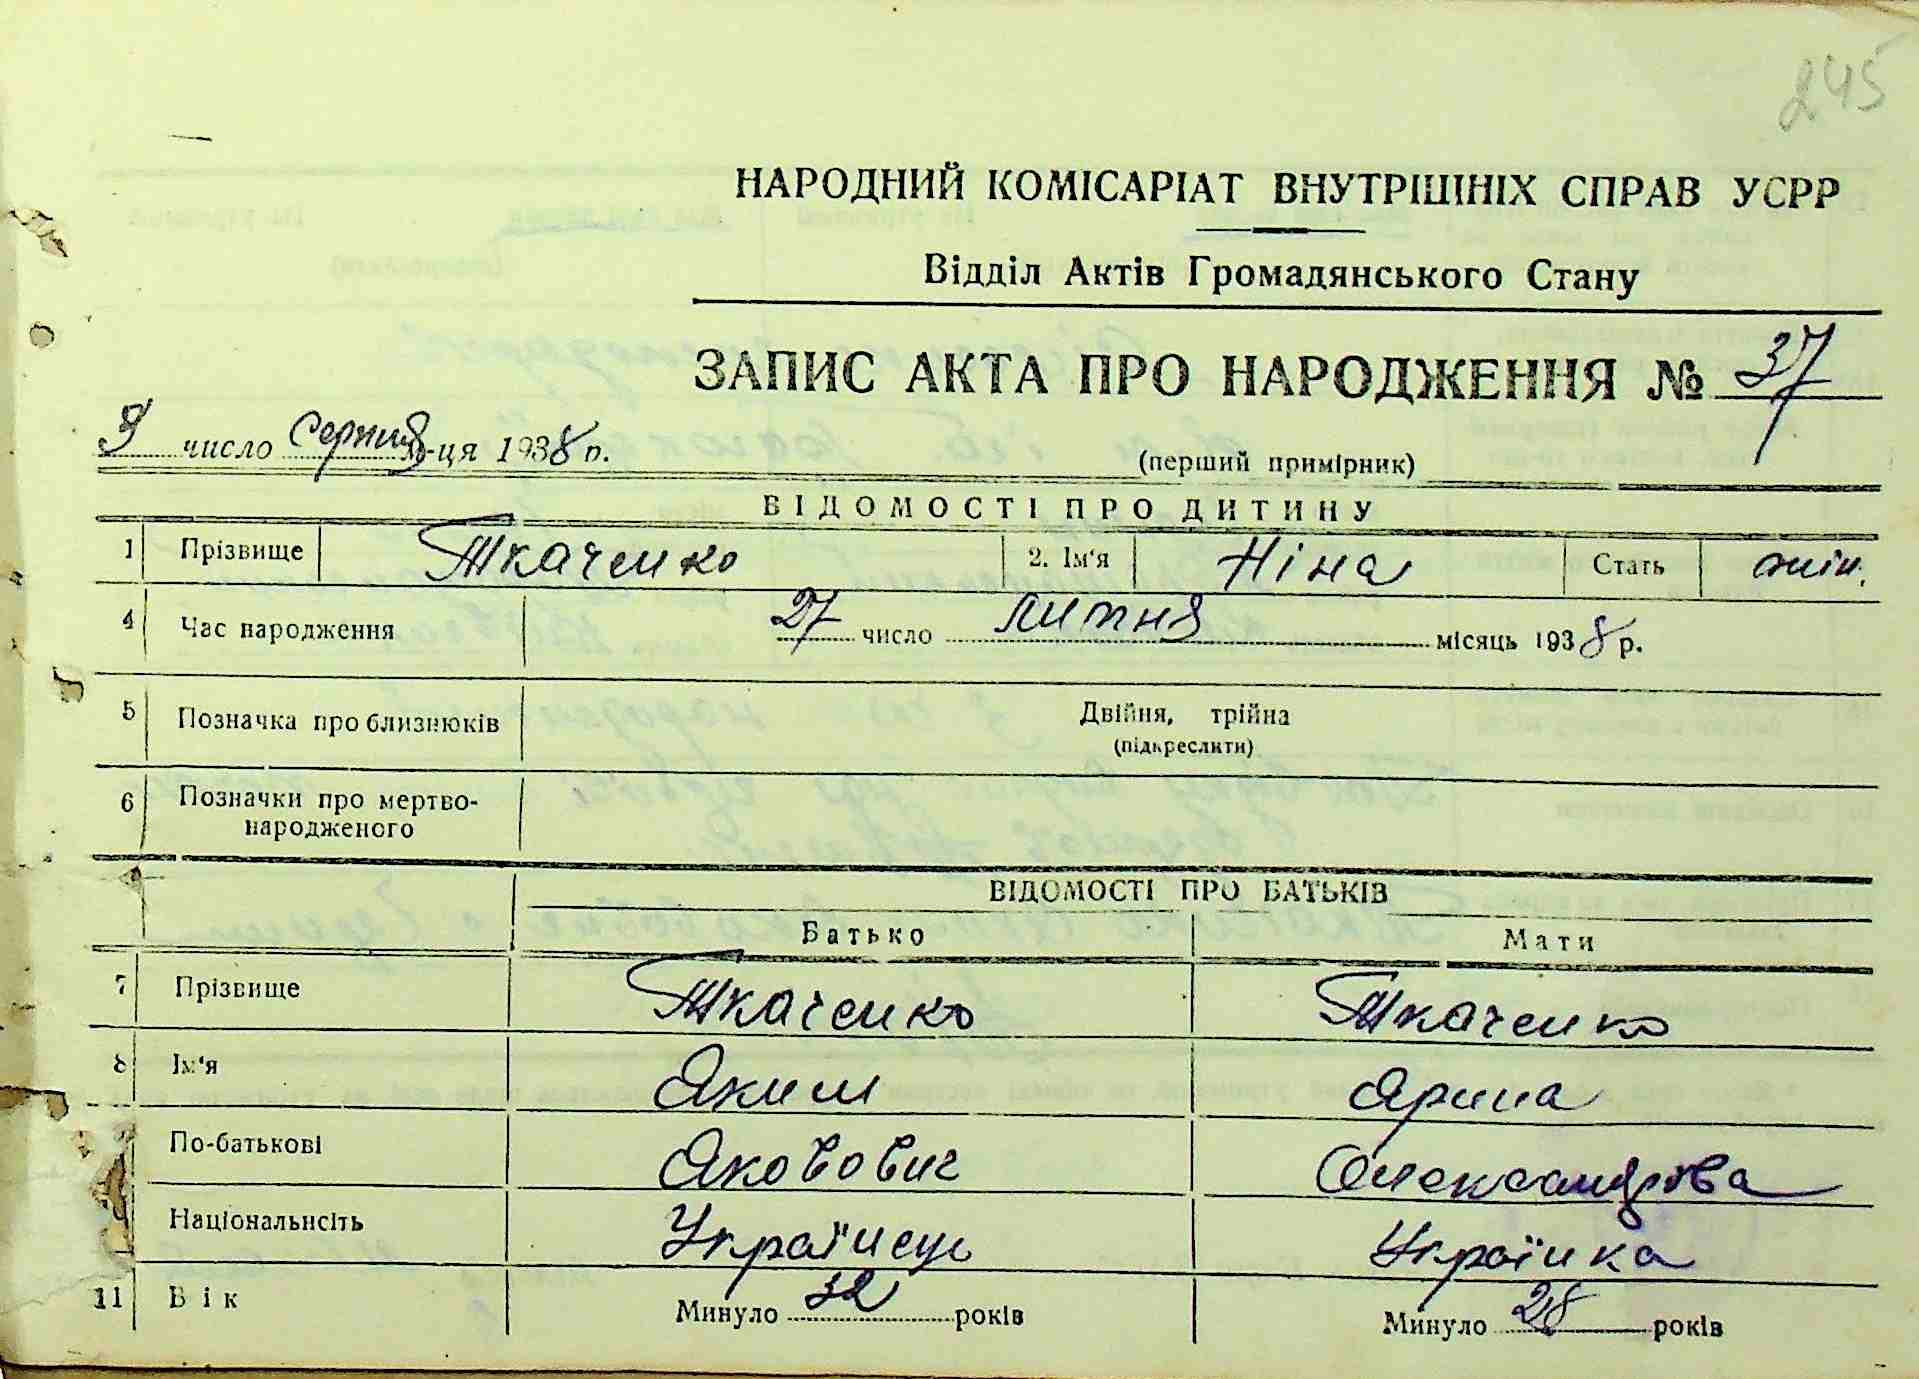 245
НАРОДНИЙ КОМІСАРІАТ ВНУТРІШНІХ СПРАВ УСРР
Відділ Актів Громадянського Стану
ЗАПИС АКТА ПРО НАРОДЖЕННЯ № 37
9 число Серпня м-ця 1938 р.
(перший примірник)
ВІДОМОСТІ ПРО ДИТИНУ
1 Прізвище Ткаченко 2. Ім'я Ніна Стать жін.
4 Час народження 27 число липня місяць 1938 р.
5 Позначка про близнюків Двійня, трійна
(підкреслити)
6 Позначки про мертво-
народженого
ВІДОМОСТІ ПРО БАТЬКІВ
Батько Мати
7 Прізвище Ткаченко Ткаченко
8 Ім'я Яким Ярина
По-батькові Яковович Олександрова
Національнсіть Українець Українка
11 Вік Минуло 32 років Минуло 28 років